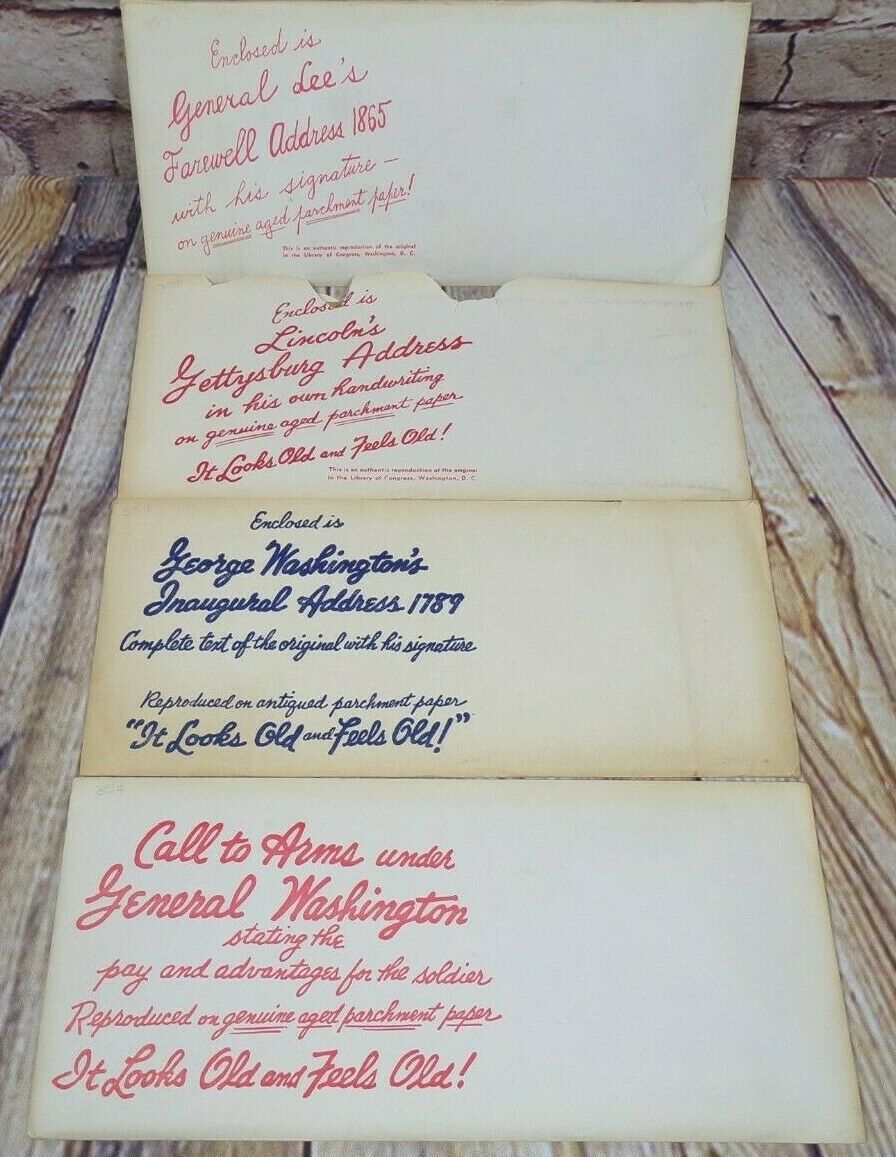 Enclosed is
General Lee's
Farewell Address 1865
with his signature —
on genuine aged parchment paper!
This is an authentic reproduction of the original
in the Library of Congress, Washington, D. C.
Enclosed is
Lincoln's
Gettysburg Address
in his own handwriting
on genuine aged parchment paper
It Looks Old and Feels Old!
This is an authentic reproduction of the original
in the Library of Congress, Washington, D. C.
Enclosed is
George Washington's
Inaugural Address 1789
Complete text of the original with his signature
Reproduced on antiqued parchment paper
"It Looks Old and Feels Old!"
Call to Arms under
General Washington
stating the
pay and advantages for the soldier
Reproduced on genuine aged parchment paper
It Looks Old and Feels Old!